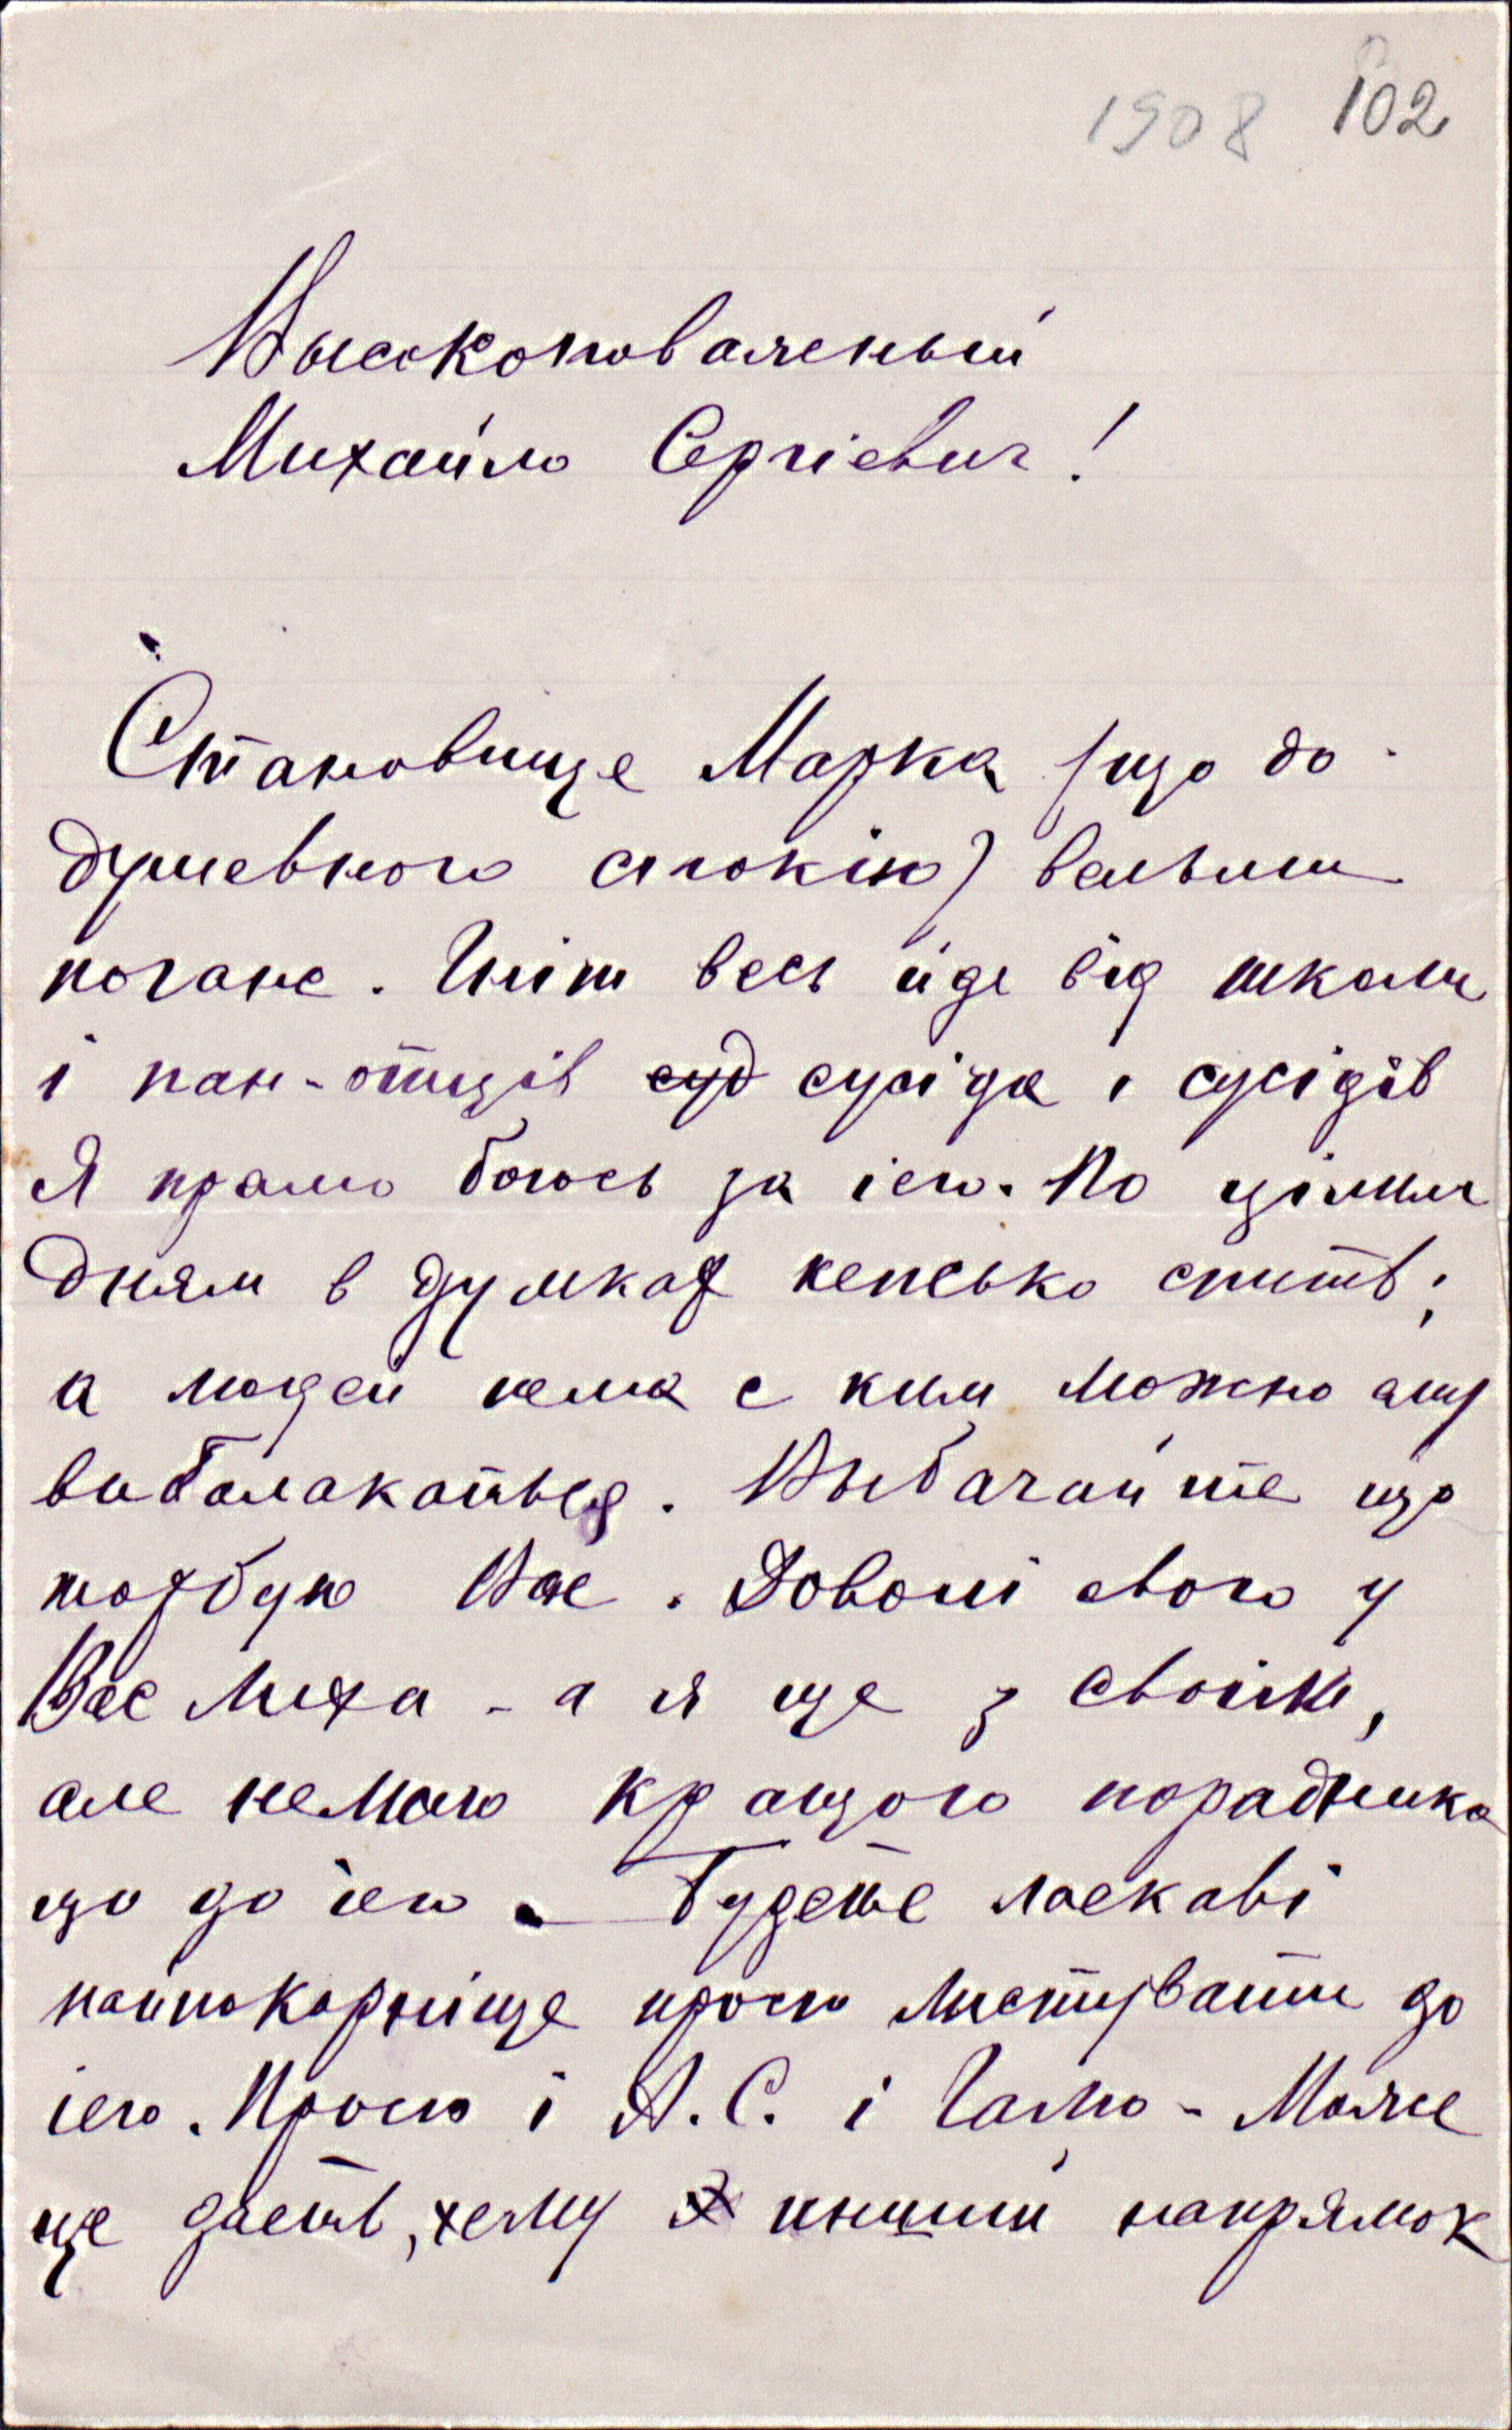 1908 102
Высоковаженый
Михайло Сергієвич!
Становище Марка (що до
душевного спокію) вельми
погане. Гніт весь йде від школи
і пан-отців суд сусіда і сусідів
Я прямо боюсь за іего. По цілим
дням в думках кепсько спить;
а людей нема с ким можно
выбалакаться. Выбачайте що
турбую Вас. Доволі свого у
Вас лиха - а я ще з своїм,
але немаю кращого порадника
що до іего. Будете ласкаві
найпокорніще прошу листувати до
іего. Прошу і А. С. і Галю - Може
це дасть, йему инший напрямок